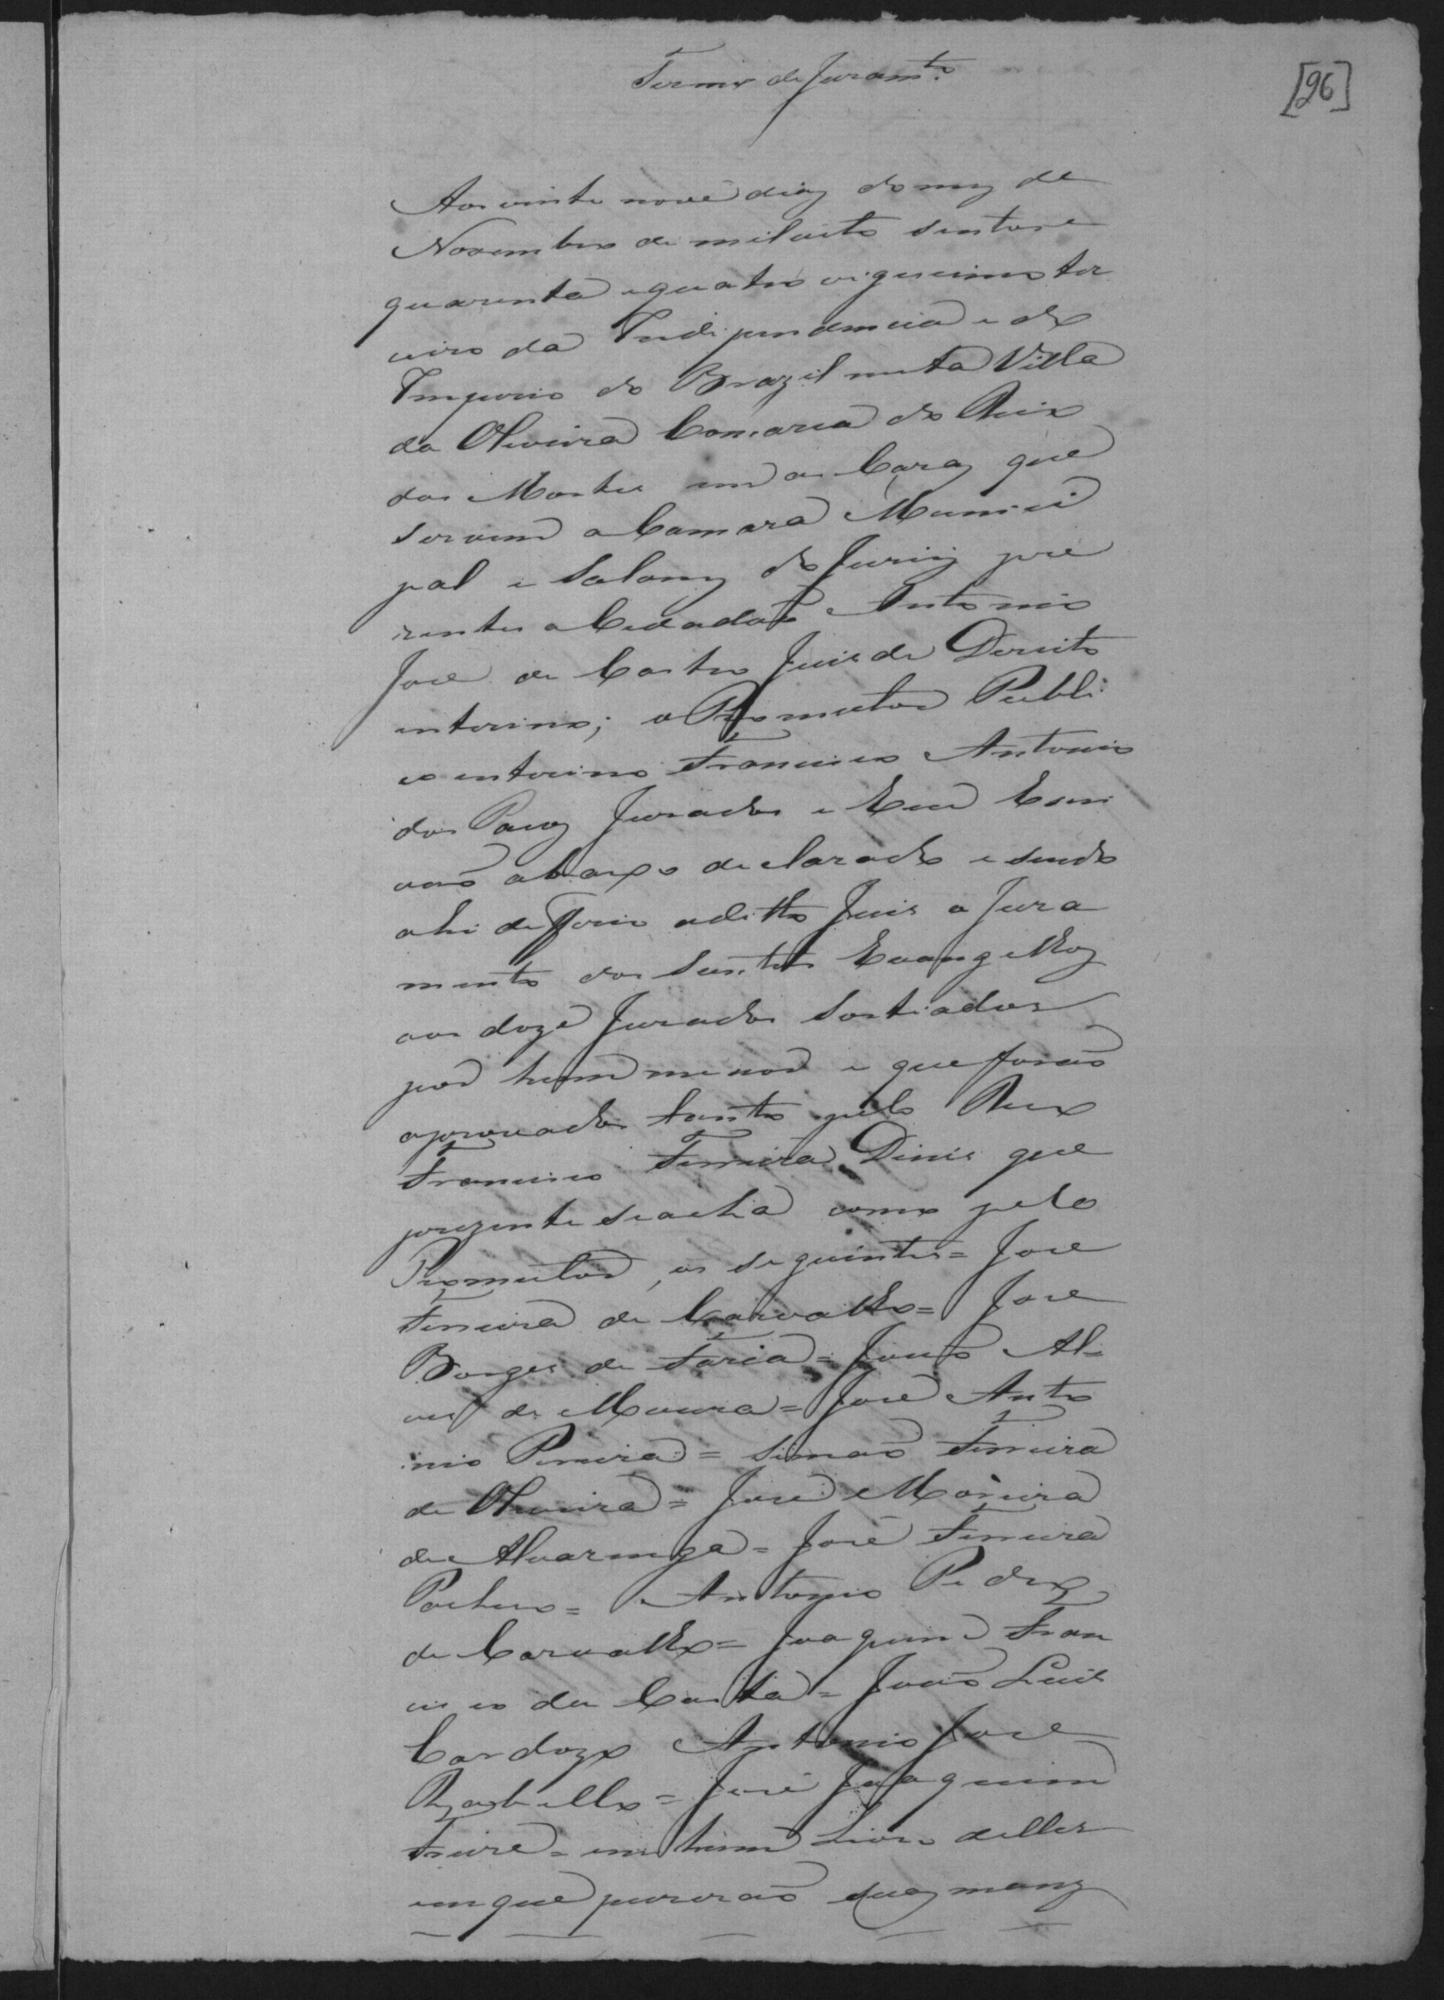 Termo de Juram.to
[96]
Aos vinte nove dias do mez de
Novembro de mil oito sentos e
quarenta e quatro vigessimo ter
ceiro da Independencia e do
Imperio do Brazil nesta Villa
da Oliveira Comarca do Rio
das Mortes em as Cazas que
servem a Camara Munici
pal e Salam do Juris pre
zentes o Cidadão Antonio
José de Castro Juis de Direito
interino; o Promutor Publi
co interino Francisco Antonio
dos Jurados e Eu Escri
vão abaxo declarado e sendo
ahi deffirio o ditto Juis o Jura
mento dos Santos Evangelhos
aos doze Jurados Sortiados
por hum menor e que forão
aprovados tanto pelo Reo
Francisco Ferreira Dinis que
prezente se acha como pelo
Promutor, os seguintes = José
Ferreira de Carvalho = José
Borges de Faria = João Al=
ves de Moura = José Anto
nio Pereira = Simão Ferreira
de Oliveira = José Moreira
de Alvarenga = José Ferreira
Pacheco = Antonio Pedro
de Carvalho = Joaquim Fran
cisco da Costa = João Luis
Cardozo Antonio José
Rabello = José Joaquim
Freire = em hum Livro delles
em que puzerão suas mans